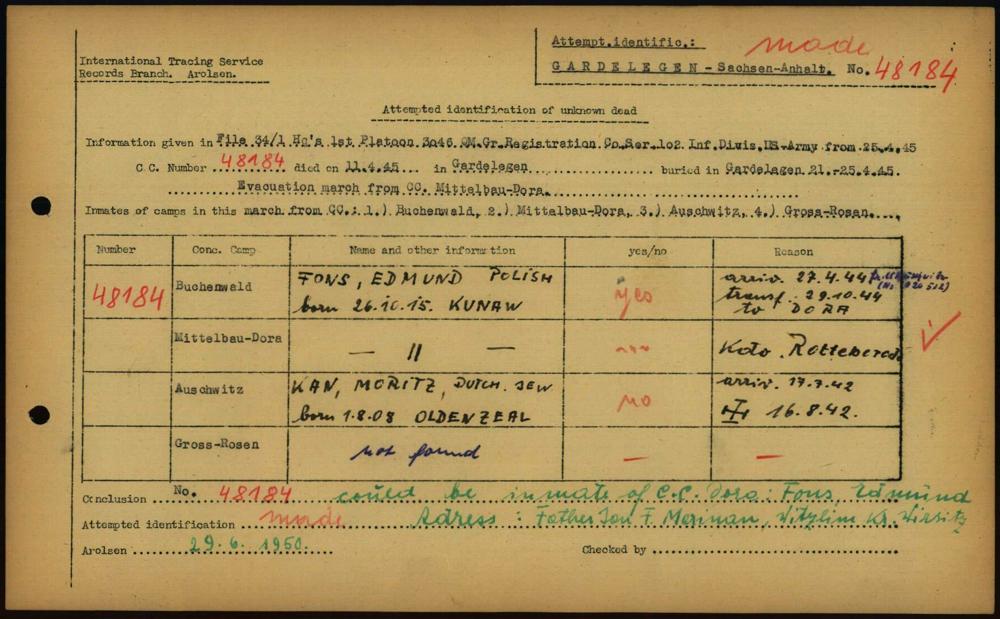 International Tracing Service
Records Branch. Arolsen.
Attempt.identific.: made
GARDELEGEN - Sachsen-Anhalt. No. 48184
Attempted identification of unknown dead
Information given in File 34/1 Hq's 1st Platoon 3046 QM.Gr.Registration Co.Ser.102 Inf.Divis.US-Army from 25.4.45
C.C. Number 48184 died on 11.4.45 in Gardelegen buried in Gardelegen 21.-25.4.45.
Evacuation march from CC. Mittelbau-Dora.
Inmates of camps in this march from CC.: 1.) Buchenwald, 2.) Mittelbau-Dora, 3.) Auschwitz, 4.) Gross-Rosen.
Number Conc. Camp Name and other information yes/no Reason
48184 Buchenwald FONS, EDMUND POLISH
born 26.10.15. KUNAW yes arriv. 27.4.44
transf. 29.10.44
to DORA
Mittelbau-Dora — 11 — Kdo. Rottleberode
Auschwitz KAN, MORITZ, DUTCH. JEW
born 1.8.08 OLDENZEAL no arriv. 17.7.42
16.8.42.
Gross-Rosen not found — —
Conclusion No. 48184 could be inmate of C.C. Dora: Fons Edmund
Attempted identification made Adress: Father Jon F. Merinan, Witzlim Kr. Wirsitz
Arolsen 29.6.1950. Checked by